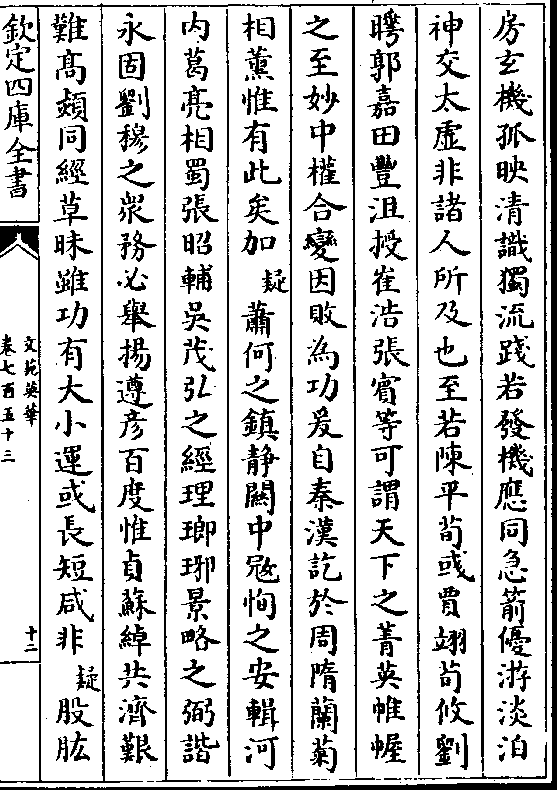 房玄機孤映清識獨流踐若發機應同急箭優游淡泊
神交太虛非諸人所及也至若陳平荀彧賈翊荀攸劉
曄郭嘉田豐沮授崔浩張賓等可謂天下之菁英帷幄
之至妙中權合變因敗為功爰自秦漢訖於周隋蘭菊
相薰惟有此矣加疑蕭何之鎮静關中冦恂之安輯河
内葛亮相蜀張昭輔吳茂弘之經理瑯琊景略之弼諧
永固劉穆之衆務必舉揚遵彦百度惟貞蘇綽共濟艱
難髙熲同經草昧雖功有大小運或長短咸非疑股肱
欽定四庫全書
文苑英華
卷七百五十三
十二